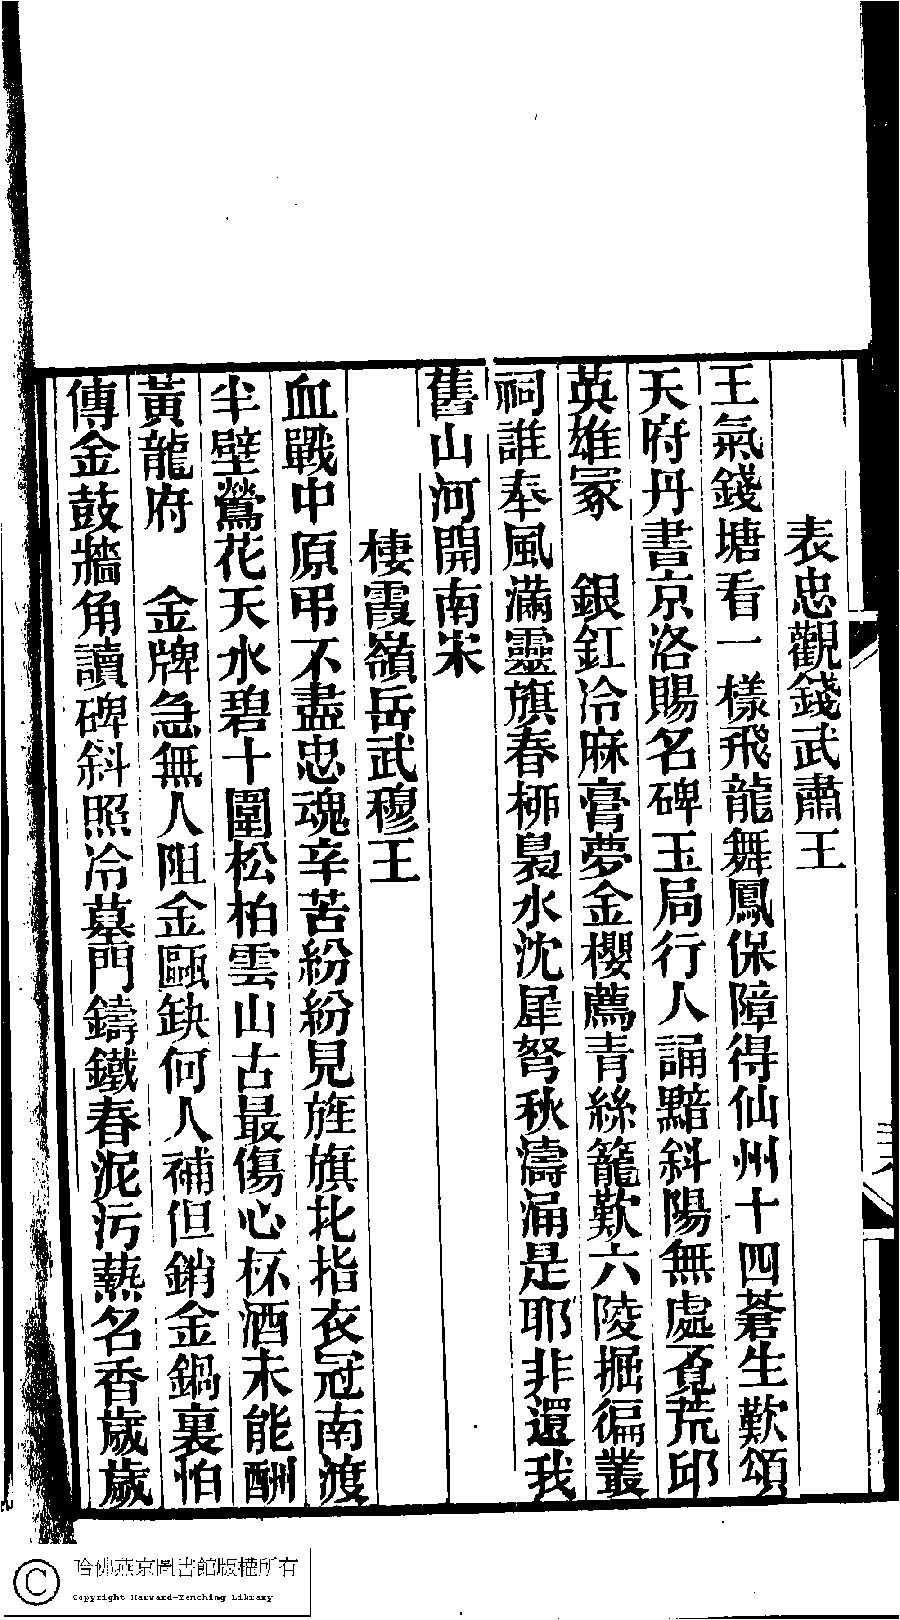 表忠觀錢武肅王
王氣錢塘看一樣飛龍舞鳳保障得仙州十四蒼生歎頌
天府丹書京洛賜名碑玉局行人誦黯斜陽無處覓荒邱
英雄冢　銀釭冷麻膏夢金櫻薦青絲籠歎六陵掘徧叢
祠誰奉風滿靈旗春栁裊水沈犀弩秋濤涌是耶非還我
舊山河開南宋
棲霞嶺岳武穆王
血戰中原弔不盡忠魂辛苦紛紛見旌旗北指衣冠南渡
半壁鶯花天水碧十圍松柏雲山古最傷心杯酒未能酬
黃龍府　金牌急無人阻金甌缺何人補但銷金鍋裏怕
傳金鼓牆角讀碑斜照冷墓門鑄鐵春泥污爇名香歲歲
六
哈佛燕京圖書館版權所有
Copyright Harvard-Yenching Library